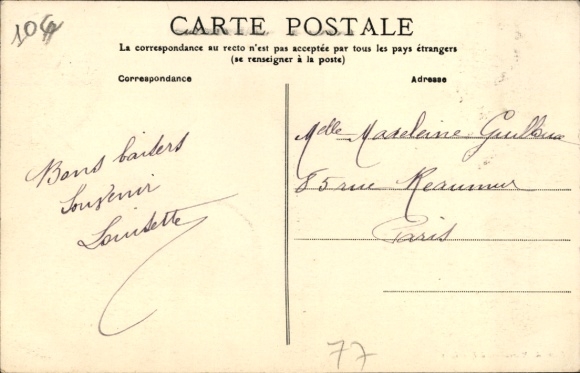 104
CARTE POSTALE
La correspondance au recto n'est pas acceptée par tous les pays étrangers
(se renseigner à la poste)
Correspondance
Adresse
Bons baisers
Souvenir
Louisette
Melle Madeleine
85 rue Reaumur
Paris
77